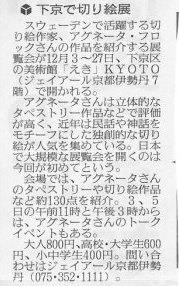 ▼下京で切り絵展
　スウェーデンで活躍する切
り絵作家、アグネータ・フロ
ックさんの作品を紹介する展
覧会が12月３～27日、下京区
の美術館「えき」ＫＹＯＴＯ
（ジェイアール京都伊勢丹７
階）で開かれる。
　アグネータさんは立体的な
タペストリー作品などで評価
が高く、近年は民話や神話を
モチーフにした独創的な切り
絵が人気を集めている。日本
で大規模な展覧会を開くのは
今回が初めてという。
　会場では、アグネータさん
のタペストリーや切り絵作品
など約130点を紹介。３、５
日の午前11時と午後３時から
は、アグネータさんのトーク
イベントもある。
　大人800円、高校・大学生600
円、小中学生400円。問い合
わせはジェイアール京都伊勢
丹（075・352・1111）。